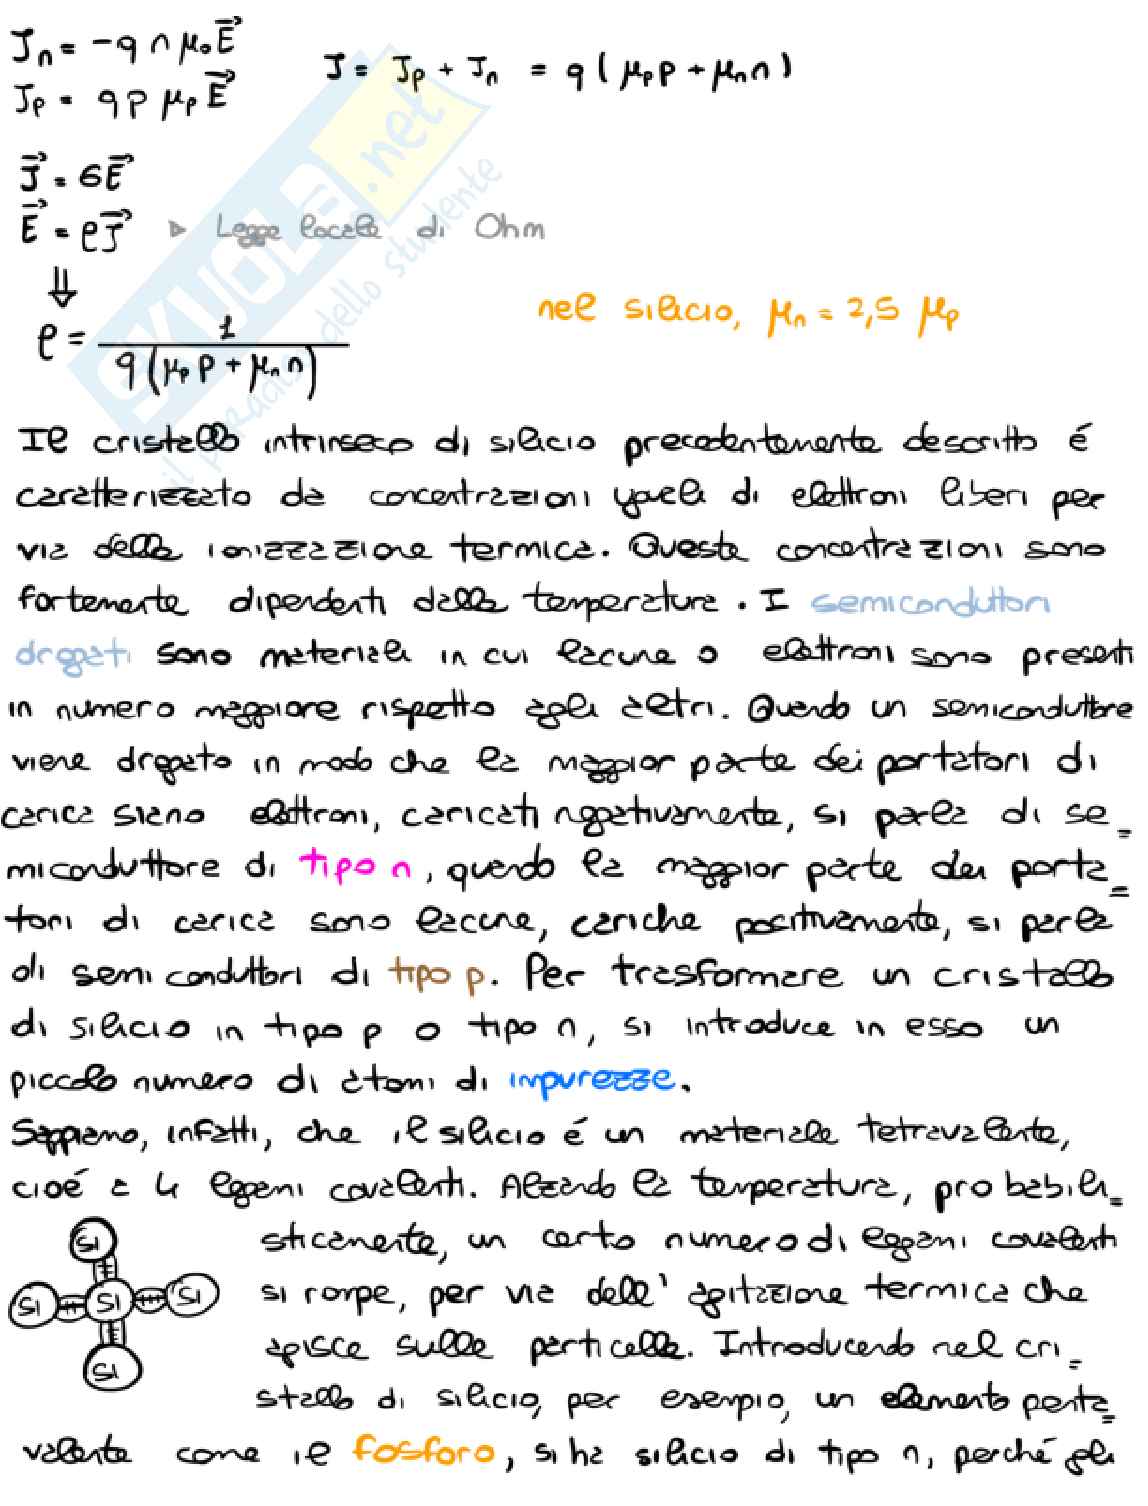 Jn = -q n μo E⃗
Jp = q p μp E⃗
J = Jp + Jn = q ( μp p + μn n )
J⃗ = σE⃗
E⃗ = ρJ⃗ ▷ Legge locale di Ohm
⇓
ρ = 1 / q (μp p + μn n)
nel silicio, μn = 2,5 μp
SKUOLA.net
il paradiso dello studente
Il cristallo intrinseco di silicio precedentemente descritto é
caratterizzato da concentrazioni uguali di elettroni liberi per
via della ionizzazione termica. Queste concentrazioni sono
fortemente dipendenti dalla temperatura. I semiconduttori
drogati sono materiali in cui lacune o elettroni sono presenti
in numero maggiore rispetto agli altri. Quando un semiconduttore
viene drogato in modo che la maggior parte dei portatori di
carica siano elettroni, caricati negativamente, si parla di se=
miconduttore di tipo n, quando la maggior parte dei porta=
tori di carica sono lacune, cariche positivamente, si parla
di semiconduttori di tipo p. Per trasformare un cristallo
di silicio in tipo p o tipo n, si introduce in esso un
piccolo numero di atomi di impurezze.
Sappiamo, infatti, che il silicio é un materiale tetravalente,
cioé a 4 legami covalenti. Alzando la temperatura, probabili=
sticamente, un certo numero di legami covalenti
si rompe, per via dell' agitazione termica che
agisce sulle particelle. Introducendo nel cri=
stallo di silicio, per esempio, un elemento penta=
valente come il fosforo, si ha silicio di tipo n, perché gli
Si
Si Si Si
Si